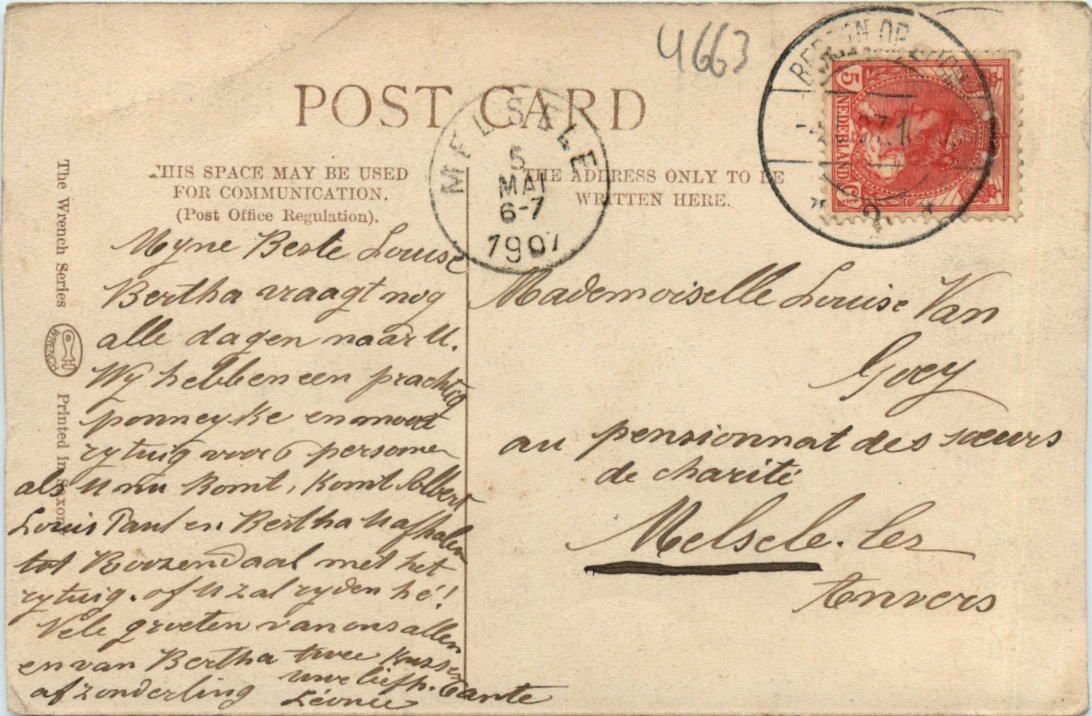 4663
POST CARD
THIS SPACE MAY BE USED
FOR COMMUNICATION.
(Post Office Regulation).
THE ADDRESS ONLY TO BE
WRITTEN HERE.
MELSELE
5
MAI
6-7
1907
BERGEN OP ZOOM
5
NEDERLAND
The Wrench Series
WRENCH
Printed in Saxony
Myne Beste Louise
Bertha vraagt nog
alle dagen naar U.
Wy hebben een prachtig
ponneyke en mooi
rytuig voor 6 personen
als U nu komt, komt Albert
Louis Paul en Bertha U afhalen
tot Roozendaal met het
rytuig. of U zal ryden hé!
Vele groeten van ons allen
en van Bertha twee kussen
afzonderling uwe liefh. Tante
Léonie
Mademoiselle Louise Van
Goey
au pensionnat des sœurs
de charité
Melsele-lez
Anvers